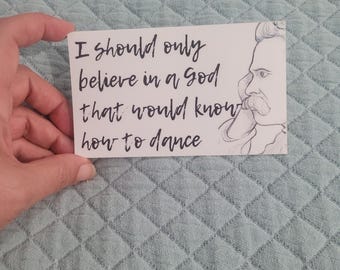 I should only
believe in a God
that would know
how to dance